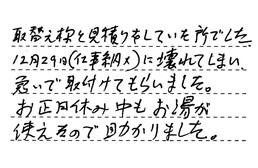 取替え検と見積りをしていた所でした。
12月29日(仕事納め)に壊れてしまい、
急いで取付けてもらいました。
お正月休み中もお湯が
使えるので助かりました。